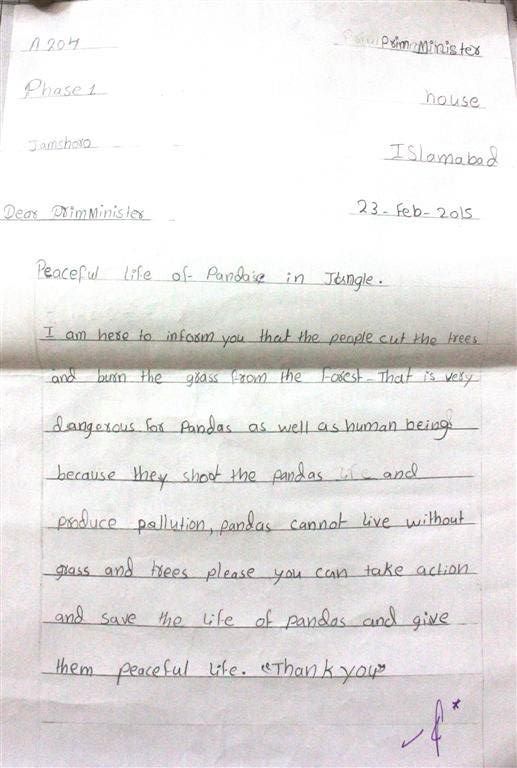 A 204
PrimMinister
Phase 1
house
Jamshoro
ISlamabad
Dear PrimMinister
23-Feb-2015
Peaceful life of Pandase in Jungle.
I am here to inform you that the people cut the trees
and burn the grass from the forest. That is very
dangerous for Pandas as well as human beings
because they shoot the pandas and
produce pollution, pandas cannot live without
grass and trees please you can take action
and save the life of pandas and give
them peaceful life. "Thank you"